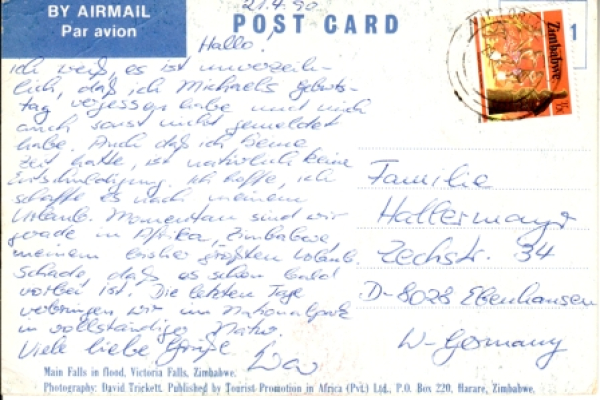 BY AIRMAIL
Par avion
POST CARD
21.4.90
Zimbabwe
1
Hallo!
Ich weiß, es ist unverzeih-
lich, daß ich Michaels Geburts-
tag vergessen habe und mich
auch sonst nicht gemeldet
habe. Auch daß ich keine
Zeit hatte, ist natürlich keine
Entschuldigung. Ich hoffe, ich
schaffe es nach meinem
Urlaub. Momentan sind wir
gerade in Afrika, Zimbabwe,
meinem bisher größten Urlaub.
Schade, daß es schon bald
vorbei ist. Die letzten Tage
verbringen wir im Nationalpark
in vollständiger Natur.
Viele liebe Grüße
Familie
Hallermayr
Zechstr. 34
D-8028 Ebenhausen
W-Germany
Main Falls in flood, Victoria Falls, Zimbabwe.
Photography: David Trickett. Published by Tourist Promotion in Africa (Pvt.) Ltd., P.O. Box 220, Harare, Zimbabwe.